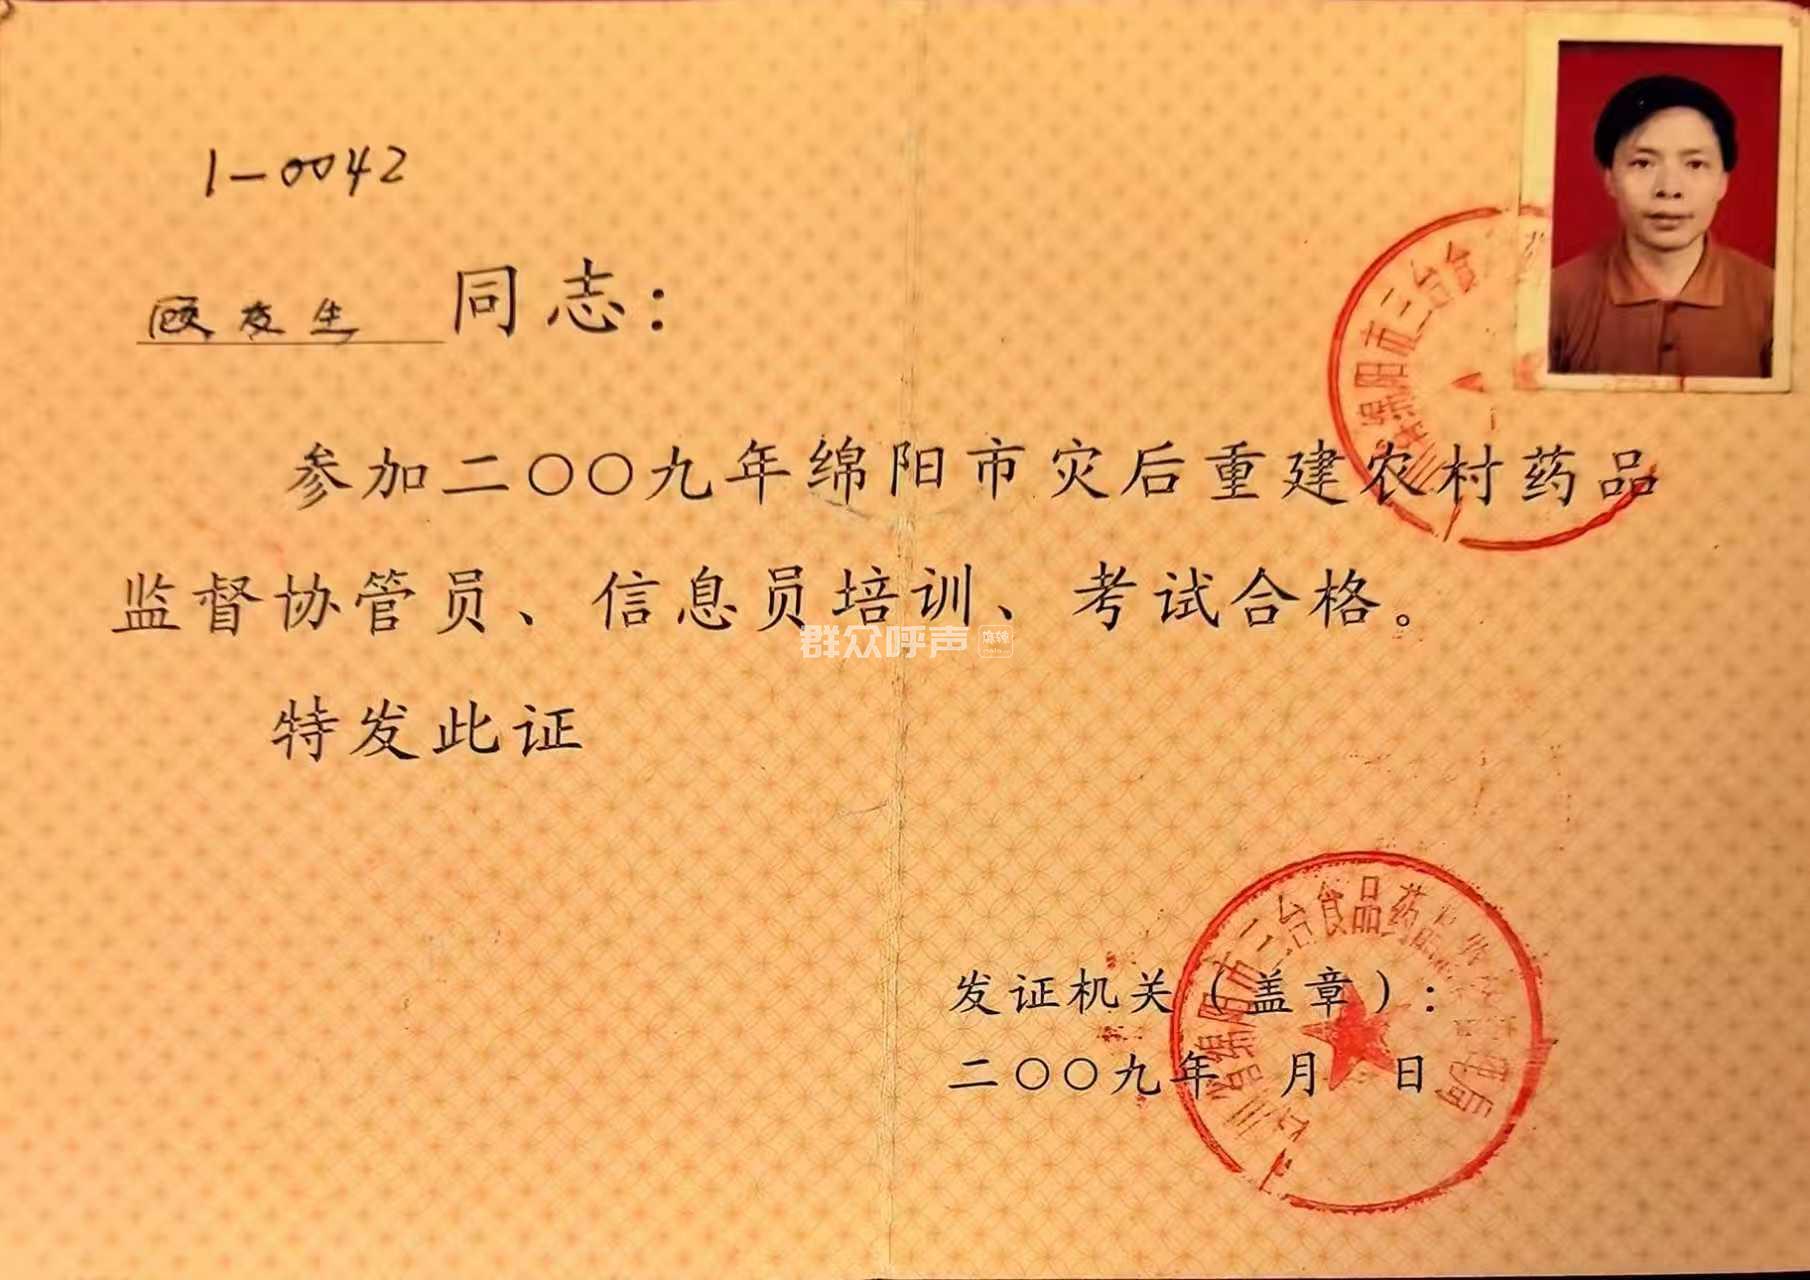 1-0042
顾友生 同志：
参加二〇〇九年绵阳市灾后重建农村药品
监督协管员、信息员培训、考试合格。
群众呼声
特发此证
绵阳市三台食
发证机关（盖章）：
二〇〇九年 月 日
川省绵阳市三台食品药品